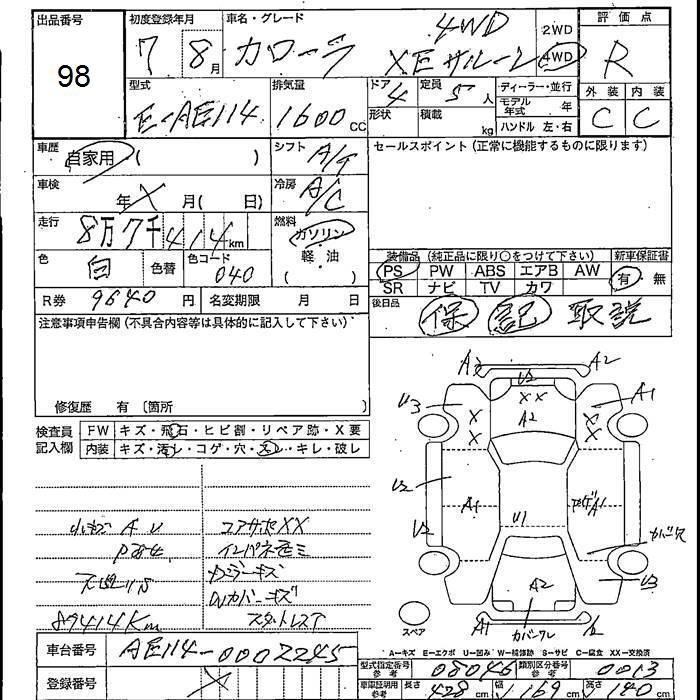 出品番号 98
初度登録年月 7 8月
車名・グレード カローラ 4WD XEサルーン
2WD
4WD
評価点 R
外装 内装
C C
型式 E-AE114
排気量 1600 CC
ドア 4
定員 5人
形状
積載 kg
ディーラー・並行
モデル年式 年
ハンドル 左・右
車歴 自家用 ( )
シフト A/T
セールスポイント(正常に機能するものに限ります)
車検 年 X 月( 日)
冷房 A/C
走行 8万7千414km
燃料 ガソリン
軽・油
( )
色 白
色替
色コード 040
装備品(純正品に限り○をつけて下さい)
新車保証書
PS PW ABS エアB AW
SR ナビ TV カワ
有・無
R券 9640 円
名変期限 月 日
後日品 保 記 取説
注意事項申告欄(不具合内容等は具体的に記入して下さい)
修復歴 有 〔箇所 〕
検査員記入欄
FW キズ・飛石・ヒビ割・リペア跡・X要
内装 キズ・汚レ・コゲ・穴・スレ・キレ・破レ
コアサポXX
89414Km
A2
U3 U2 A1
XX
A2
X X
X X
U2 A1 U1 A1
U2
U3
A2
A1
スペア
A-キズ E-エクボ U-凹み W-補修跡 S-サビ C-腐食 XX-交換済
車台番号 AE114-0002245
登録番号 X
型式指定番号 参考 08046
類別区分番号 参考 0013
車車証明用 参考 長さ 428cm 幅 169cm 高さ 140cm